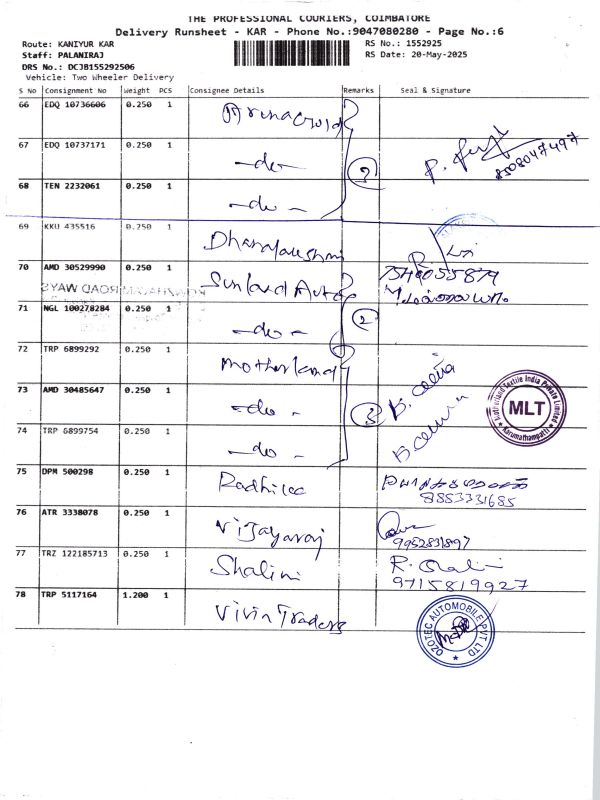 THE PROFESSIONAL COURIERS, COIMBATORE
Delivery Runsheet - KAR - Phone No.:9047080280 - Page No.:6
Route: KANIYUR KAR
Staff: PALANIRAJ
DRS No.: DCJB155292506
Vehicle: Two Wheeler Delivery
RS No.: 1552925
RS Date: 20-May-2025
S No Consignment No Weight PCS Consignee Details Remarks Seal & Signature
66 EDQ 10736606 0.250 1
67 EDQ 10737171 0.250 1 -do- 8508047497
68 TEN 2232061 0.250 1 -do-
69 KKU 435516 0.250 1
70 AMD 30529990 0.250 1 Sunland Autos
71 NGL 100278284 0.250 1 -do- 2
72 TRP 6899292 0.250 1 Motherland
73 AMD 30485647 0.250 1 -do- 3
MLT
74 TRP 6899754 0.250 1 -do-
75 DPM 500298 0.250 1
8853331685
76 ATR 3338078 0.250 1 Vijayaraj
9952831897
77 TRZ 122185713 0.250 1 Shalini R. Shalini
9715819927
78 TRP 5117164 1.200 1 Vivin Traders
OZOTEC AUTOMOBILE PVT LTD